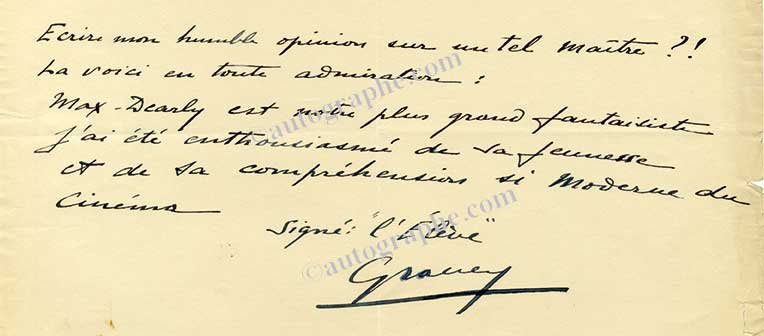 Ecrire mon humble opinion sur un tel maître ?!
La voici en toute admiration :
Max-Dearly est notre plus grand fantaisiste
j'ai été enthousiasmé de sa jeunesse
et de sa compréhension si moderne du
Cinéma
Signé : "l'Elève"
Gravey
©autographe.com
©autographe.com
©autographe.com